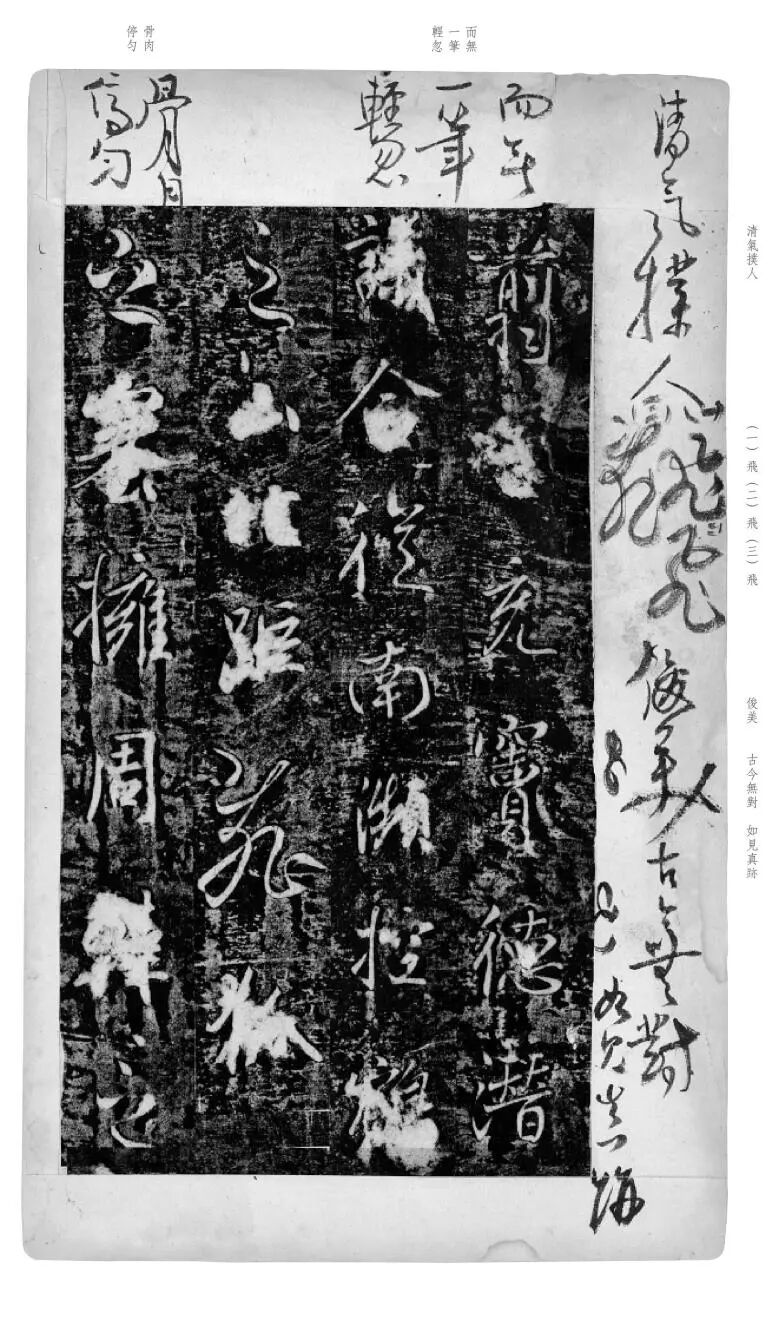 清氣撲人
（一）飛（二）飛（三）飛
俊美　古今無對　如見真跡
清氣撲人
飛飛飛
俊美
古今無對
如見真跡
而無
一筆
輕忽
而無
一筆
輕忽
骨肉
停勻
骨肉
停勻
前充實德潛
議合從南瀕控鶴
之山北距飛狐
之塞擁周韓之